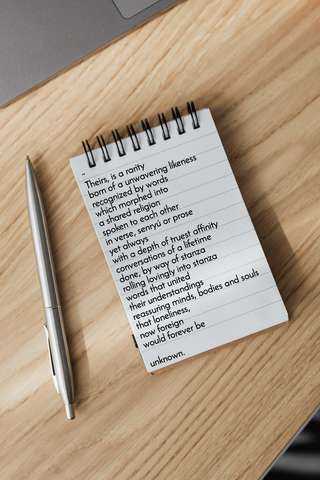 ~
Theirs, is a rarity
born of a unwavering likeness
recognized by words
which morphed into
a shared religion
spoken to each other
in verse, senryú or prose
yet always
with a depth of truest affinity
conversations of a lifetime
done, by way of stanza
rolling lovingly into stanza
words that united
their understandings
reassuring minds, bodies and souls
that loneliness,
now foreign
would forever be
unknown.